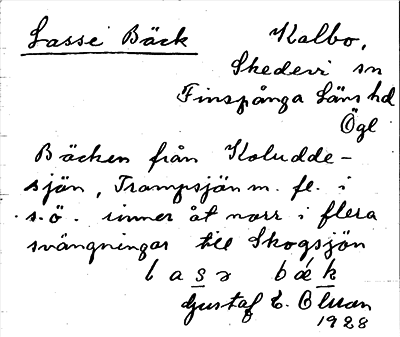 Lasse Bäck
Kalbo,
Skedevi sn
Finspånga Läns hd
Ögl
Bäcken från Koludde-
sjön, Trampsjön m. fl. i
s.ö. rinner åt norr i flera
svängningar till Skogsjön
lasə bæ̀k
Gustaf E. Bluan
1928